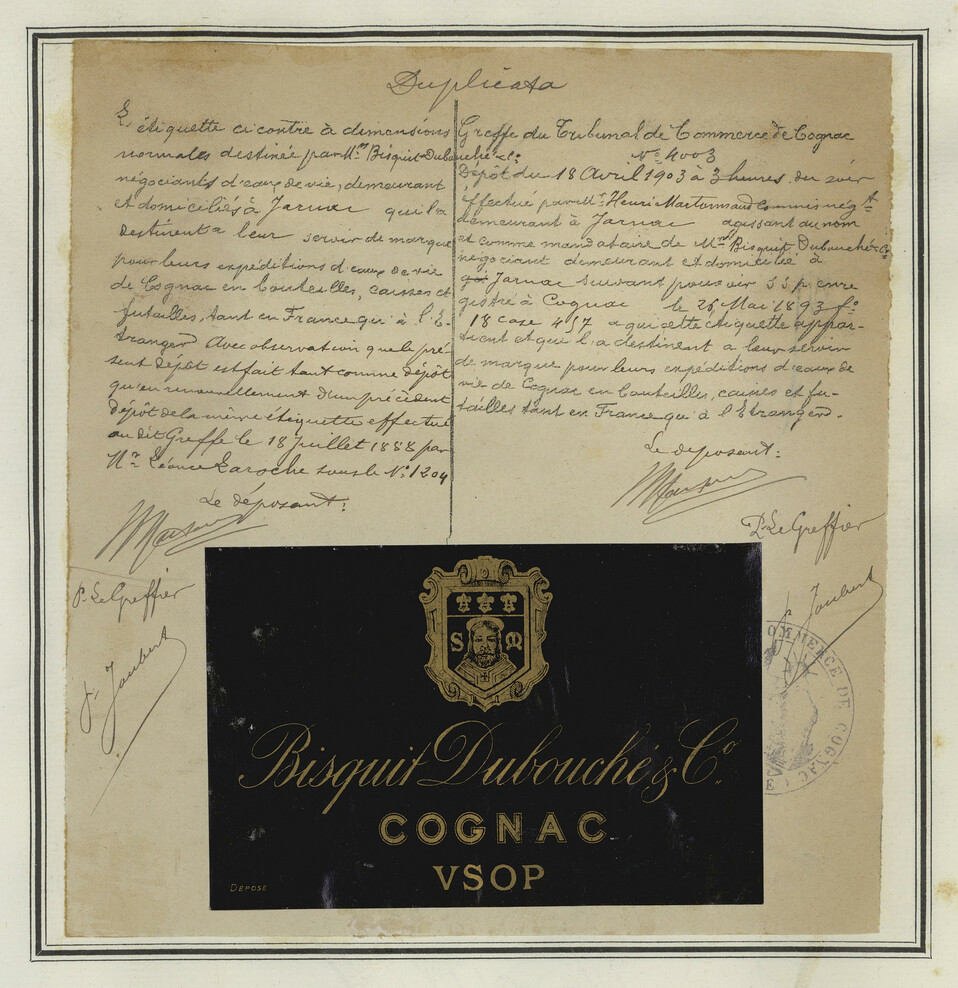 Duplicata
L'étiquette ci contre à dimensions
normales destinée par Mrs Bisquit Dubouché & Co
négociants d'eaux de vie, demeurant
et domiciliés à Jarnac qui la
destinent à leur servir de marque
pour leurs expéditions d'eaux de vie
de Cognac en bouteilles, caisses et
futailles, tant en France qu'à l'E-
tranger. Avec observation que le pré-
sent dépôt est fait tant comme dépôt
qu'en renouvellement d'un précédent
dépôt de la même étiquette effectué
au dit Greffe le 18 Juillet 1888 par
Mr Léonce Laroche sous le No 1204
Le déposant:
P. Le Greffier
J. Joubert
Greffe du Tribunal de Commerce de Cognac
No 4003
Dépôt du 18 Avril 1903 à 3 heures du soir
éffectué par Mr Henri
demeurant à Jarnac agissant au nom
et comme mandataire de Mrs Bisquit Dubouché & Co
négociant demeurant et domicilié à
Jarnac suivant pouvoir S.S.p. enre
gistré à Cognac le 26 Mai 1893 fo
18 case 457 a qui cette étiquette appar-
tient et qui l'a destinent a leur servir
de marque pour leurs expéditions d'eaux de
vie de Cognac en bouteilles, caisses et fu-
tailles tant en France qu'à l'Etranger.
Le deposant:
P. Le Greffier
J. Joubert
COMMERCE DE COGNAC
S M
Bisquit Dubouché & Co.
COGNAC
VSOP
DÉPOSÉ